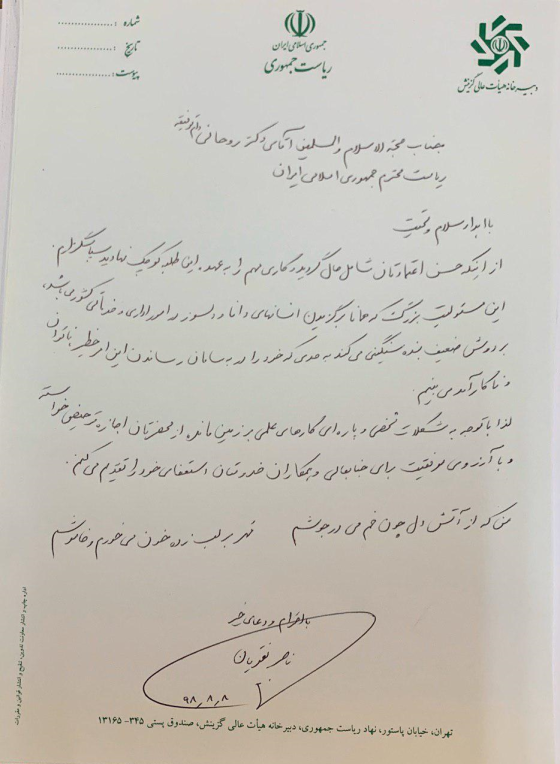 شماره :
تاریخ :
پیوست :
جمهوری اسلامی ایران
ریاست جمهوری
دبیرخانه هیأت عالی گزینش
جناب حجة الاسلام والمسلمین آقای دکتر روحانی دام توفیقه
ریاست محترم جمهوری اسلامی ایران
با اهدای سلام و تحیت
از اینکه حسن اعتمادتان شامل حال گردید و کاری مهم را به عهده این طلبه کوچک نهادید سپاسگزارم.
این مسئولیت بزرگ که همانا برگزیدن انسانهای دانا و دلسوز در امور اداری و خدماتی کشور می باشد،
بر دوش ضعیف بنده سنگینی می کند به حدی که خود را در به سامان رساندن این امر خطیر ناتوان
و ناکارآمد می بینم.
لذا با توجه به مشکلات شخصی و پاره ای کارهای علمی بر زمین مانده از محضرتان اجازه ترخیص خواسته
و با آرزوی موفقیت برای جنابعالی و همکاران خدومتان استعفای خود را تقدیم می کنم.
من که از آتش دل چون خم می در جوشم مهر بر لب زده خون می خورم و خاموشم
با احترام و دعای خیر
ناصر نقویان
۹۸٫۸٫۸
تهران، خیابان پاستور، نهاد ریاست جمهوری، دبیرخانه هیأت عالی گزینش، صندوق پستی ۳۴۵-۱۳۱۶۵
اداره چاپ و انتشار معاونت تدوین، تنقیح و انتشار قوانین و مقررات